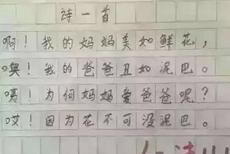 诗一首
啊！我的妈妈美如鲜花，
噢！我的爸爸丑如泥巴。
嗯！为何妈妈爱爸爸呢？
哎！因为花不可没泥巴。